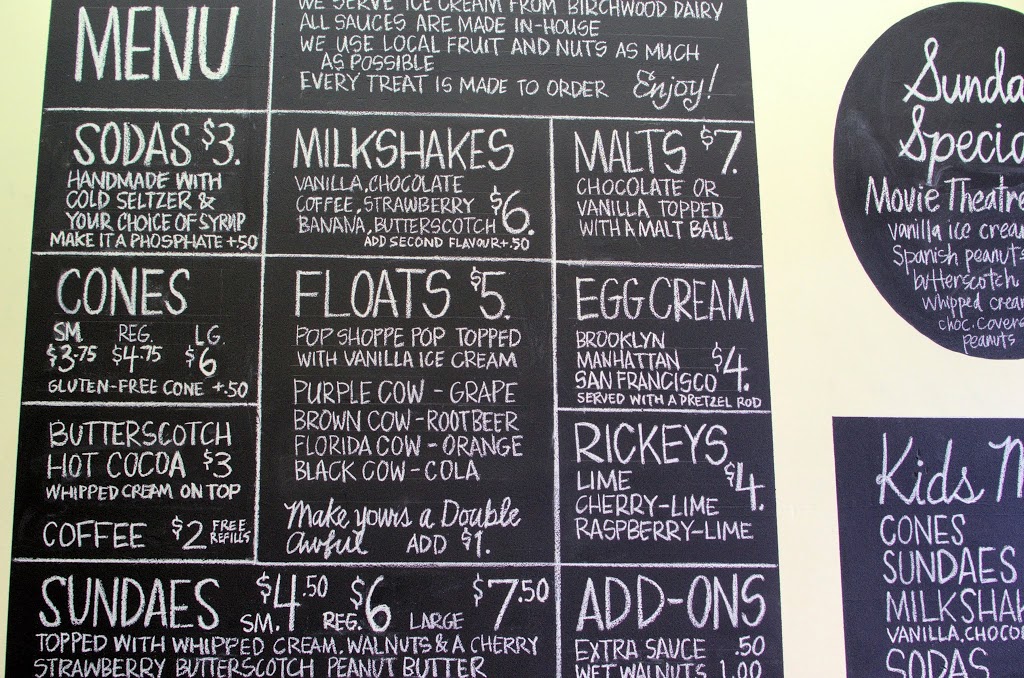 MENU
WE SERVE ICE CREAM FROM BIRCHWOOD DAIRY
ALL SAUCES ARE MADE IN-HOUSE
WE USE LOCAL FRUIT AND NUTS AS MUCH
AS POSSIBLE
EVERY TREAT IS MADE TO ORDER Enjoy!
SODAS $3.
HANDMADE WITH
COLD SELTZER &
YOUR CHOICE OF SYRUP
MAKE IT A PHOSPHATE +.50
MILKSHAKES
VANILLA, CHOCOLATE
COFFEE, STRAWBERRY $6.
BANANA, BUTTERSCOTCH
ADD SECOND FLAVOUR +.50
MALTS $7.
CHOCOLATE OR
VANILLA TOPPED
WITH A MALT BALL
CONES
SM. REG. LG.
$3.75 $4.75 $6
GLUTEN-FREE CONE +.50
FLOATS $5.
POP SHOPPE POP TOPPED
WITH VANILLA ICE CREAM
PURPLE COW - GRAPE
BROWN COW - ROOTBEER
FLORIDA COW - ORANGE
BLACK COW - COLA
Make yours a Double
Awful ADD $1.
EGG CREAM
BROOKLYN
MANHATTAN $4.
SAN FRANCISCO
SERVED WITH A PRETZEL ROD
BUTTERSCOTCH
HOT COCOA $3
WHIPPED CREAM ON TOP
COFFEE $2 FREE REFILLS
RICKEYS
LIME $4.
CHERRY-LIME
RASPBERRY-LIME
SUNDAES $4.50 SM. $6 REG. $7.50 LARGE
TOPPED WITH WHIPPED CREAM, WALNUTS & A CHERRY
STRAWBERRY BUTTERSCOTCH PEANUT BUTTER
ADD-ONS
EXTRA SAUCE .50
WET WALNUTS 1.00
Sunda
Specia
Movie Theatre
vanilla ice crea
Spanish peanuts
butterscotch
whipped crea
choc. covere
peanuts
Kids M
CONES
SUNDAES
MILKSHAK
VANILLA, CHOCO
SODAS